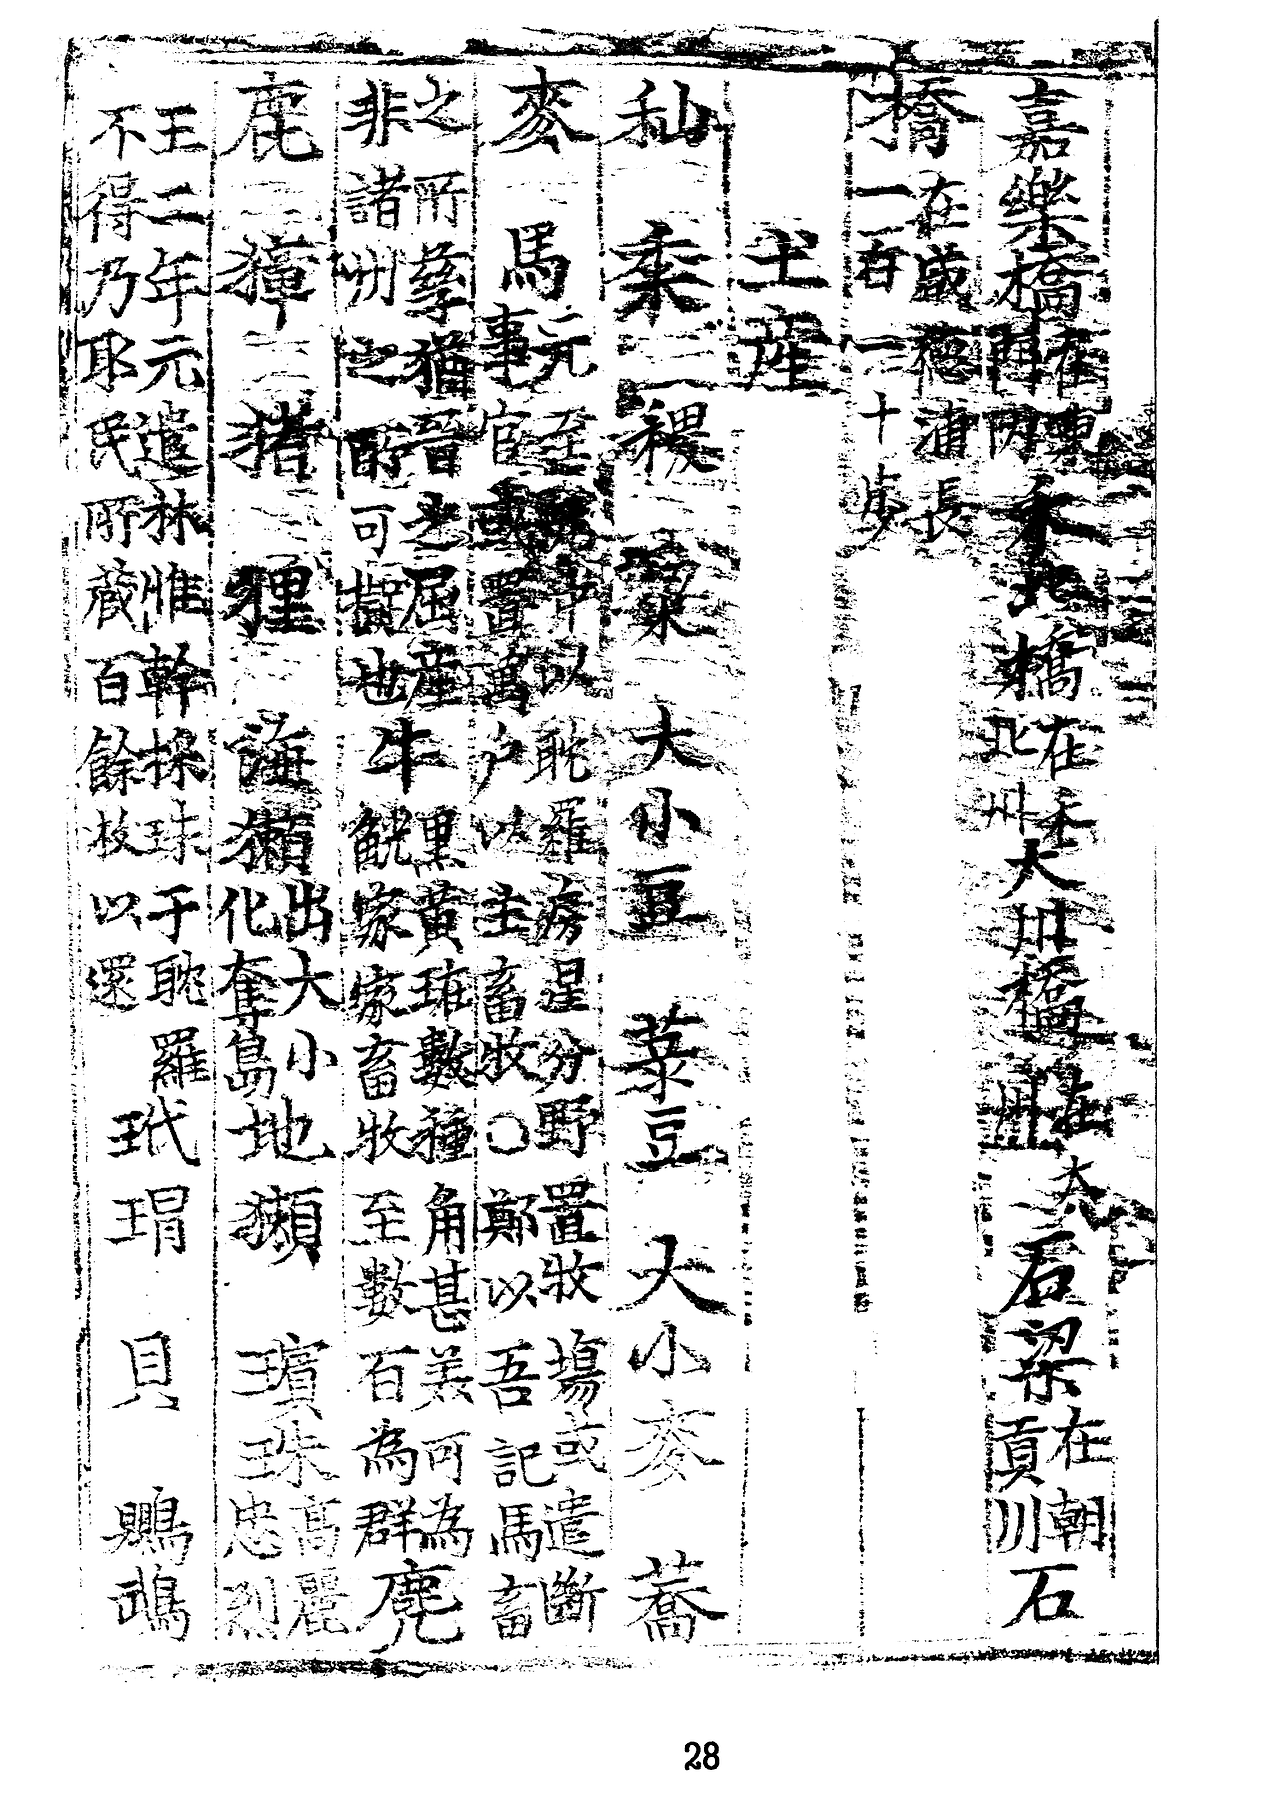 嘉樂橋在東門内禾北橋在禾北川大川橋在大川石梁在朝貢川石
橋在咸德浦長一百一十步
土産
秈 黍 稷 粟 大小豆 菉豆 大小麥 蕎
麥 馬元至元中以耽羅房星分野置牧場或遣斷事官或置萬户以主畜牧○鄭以吾記馬畜
之所孳猶晉之屈産非諸州之所可擬也牛黑黄班數種角甚美可為觥家家畜牧至數百為群麂
鹿 獐 猪 狸 海獺出大小化奪島地獺 璸珠高麗忠烈
王二年元遣林惟幹採珠于耽羅不得乃耶民所藏百餘枚以還玳瑁 貝 鸚鵡
28